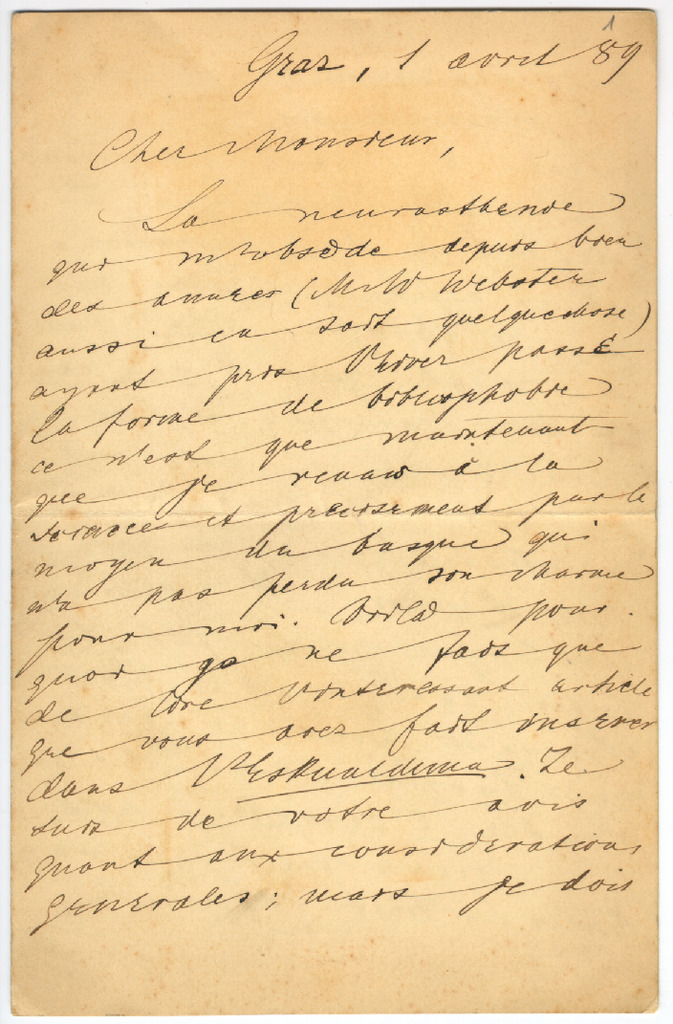 1
Graz, 1 avril 89
Cher Monsieur,
La neurasthenie
qui m'obsède depuis bien
des annees (M. W Webster
aussi en sait quelquechose)
ayant pris l'hiver passé
la forme de bibliophobie
ce n'est que maintenant
que je reviens à la
science et precisement par le
moyen du basque qui
n'a pas perdu son charme
pour moi. Voilà pour
quoi je ne fais que
de lire l'interessant article
que vous avez fait inserer
dans l'Eskualduna. Je
suis de votre avis
quant aux considerations
generales; mais je dois